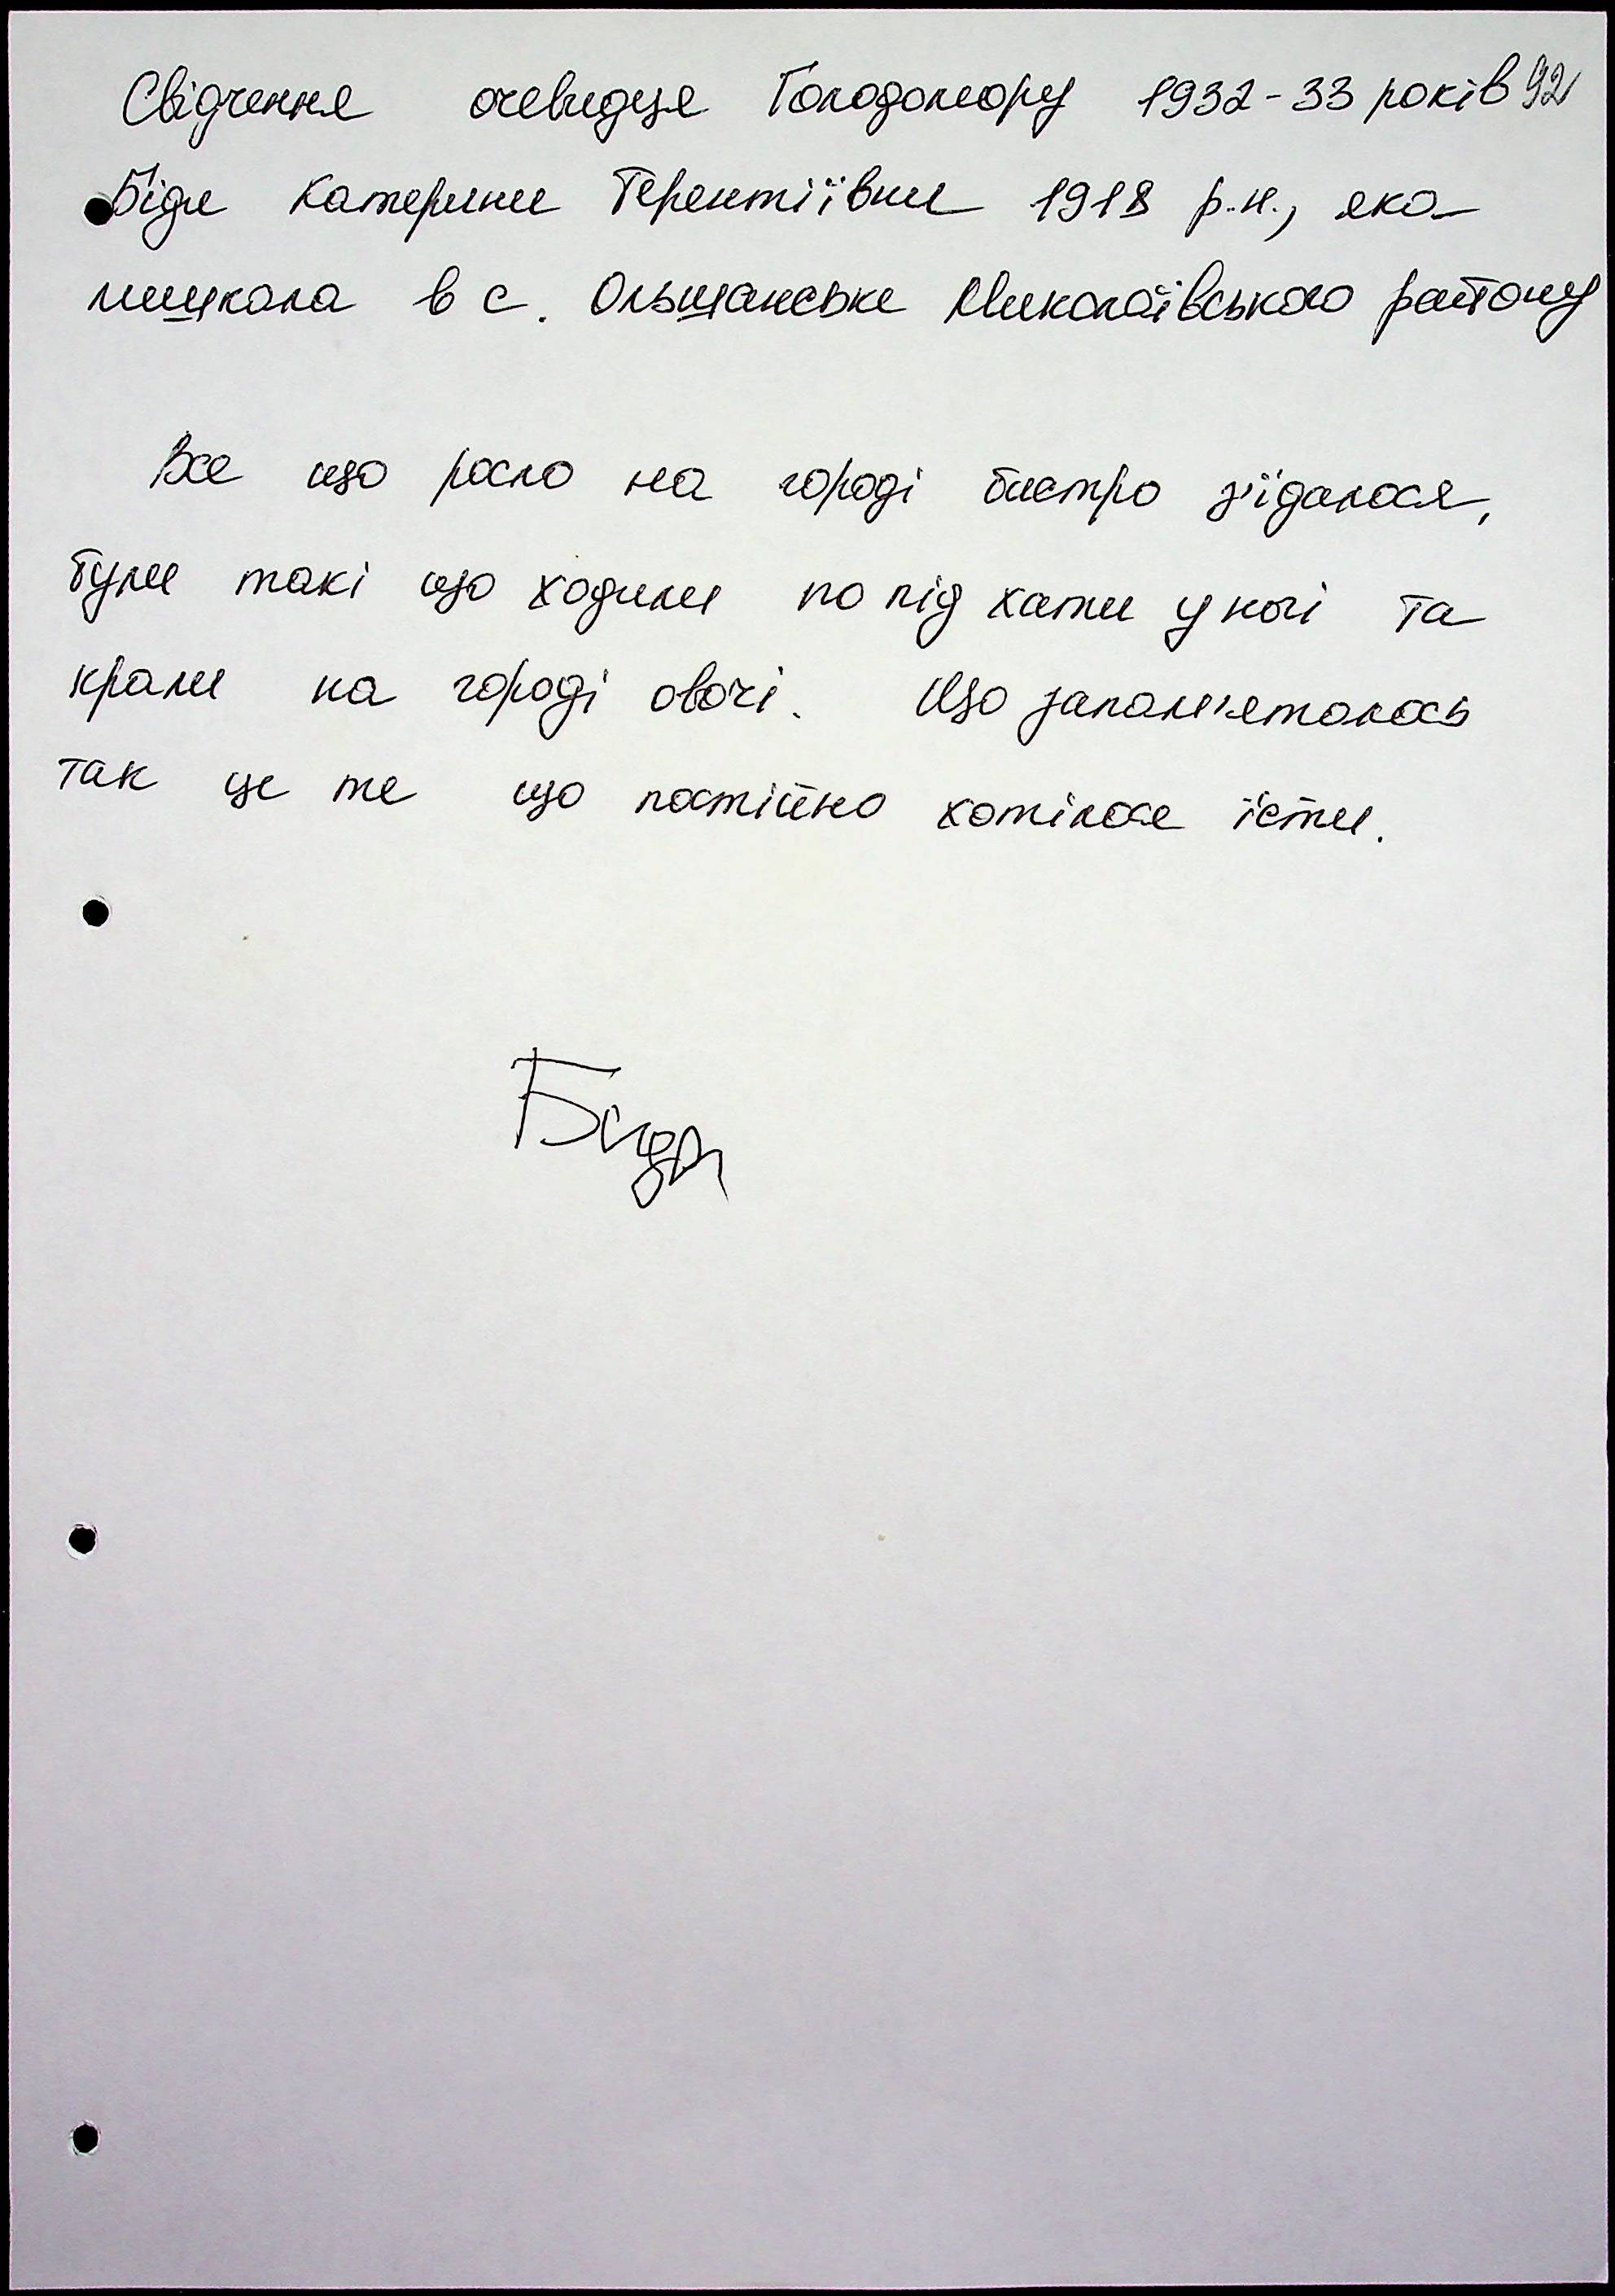 Свідчення очевидця Голодомору 1932-33 років 92
Біди Катерини Терентіївни 1918 р.н., яка
мешкала в с. Ольшанське Миколаївського району
Все що росло на городі бистро з'їдалося,
були такі що ходили по під хати у ночі та
крали на городі овочі. Що запам'яталось
так це те що постійно хотілося їсти.